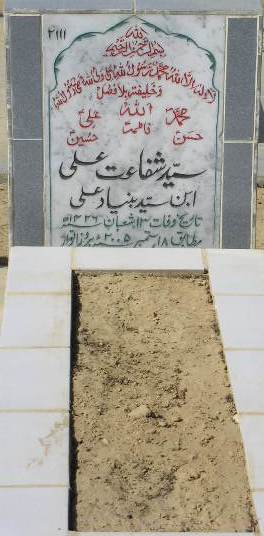 ۲۱۱۱
بسم اللہ الرحمن الرحیم
لا الہ الا اللہ محمد رسول اللہ علی ولی اللہ
و خلیفتہ بلا فصل
محمدؐ اللہ علیؑ
حسن فاطمہ حسین
سید شفاعت علی
ابن سید بنیاد علی
تاریخ وفات ۱۳ شعبان ۱۴۲۶ھ
مطابق ۱۸ ستمبر ۲۰۰۵ء بروز اتوار